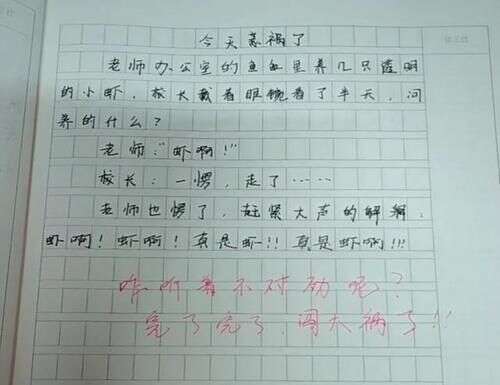 今天惹祸了
老师办公室的鱼缸里养几只透明
的小虾，校长戴着眼镜看了半天，问
养的什么？
老师："虾啊！"
校长：一愣，走了……
老师也愣了，赶紧大声的解释：
虾啊！虾啊！真是虾!!真是虾啊!!!
咋听着不对劲呢？
完了完了，闯大祸了!!